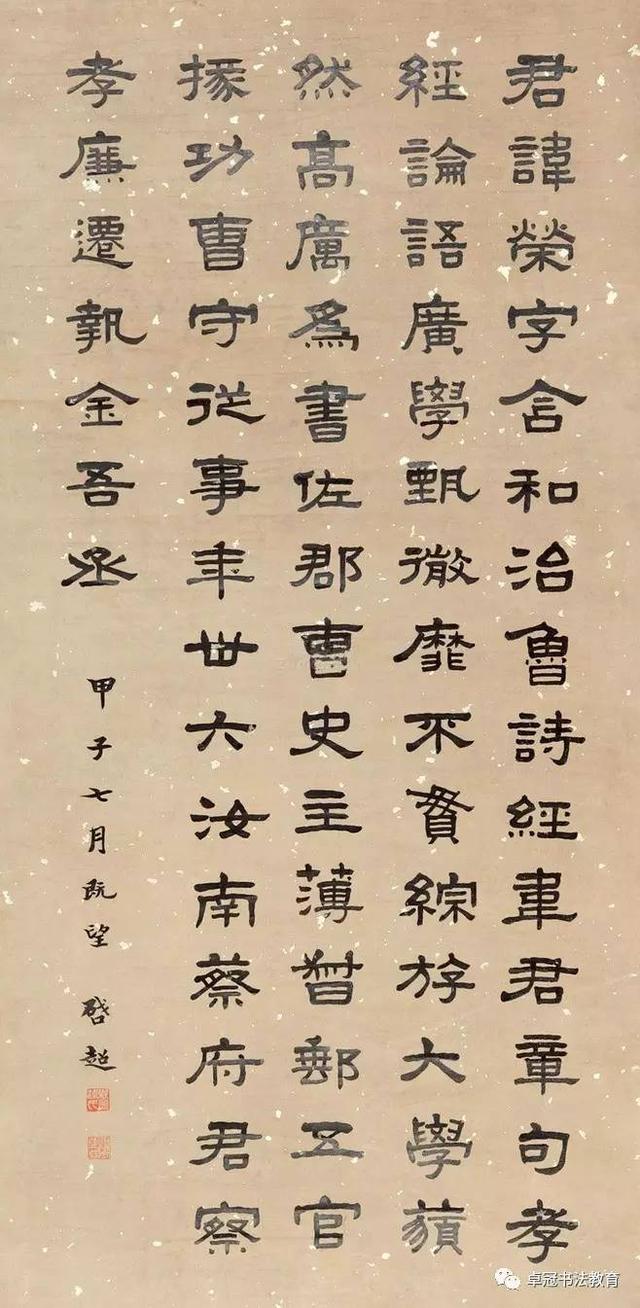 君諱榮字含和治魯詩經韋君章句孝
經論語廣學甄微靡不貫綜斿大學藐
然高厲為書佐郡曹史主薄督郵五官
掾功曹守從事年卅六汝南蔡府君察
孝廉遷執金吾丞
甲子七月既望 啓超
卓冠书法教育